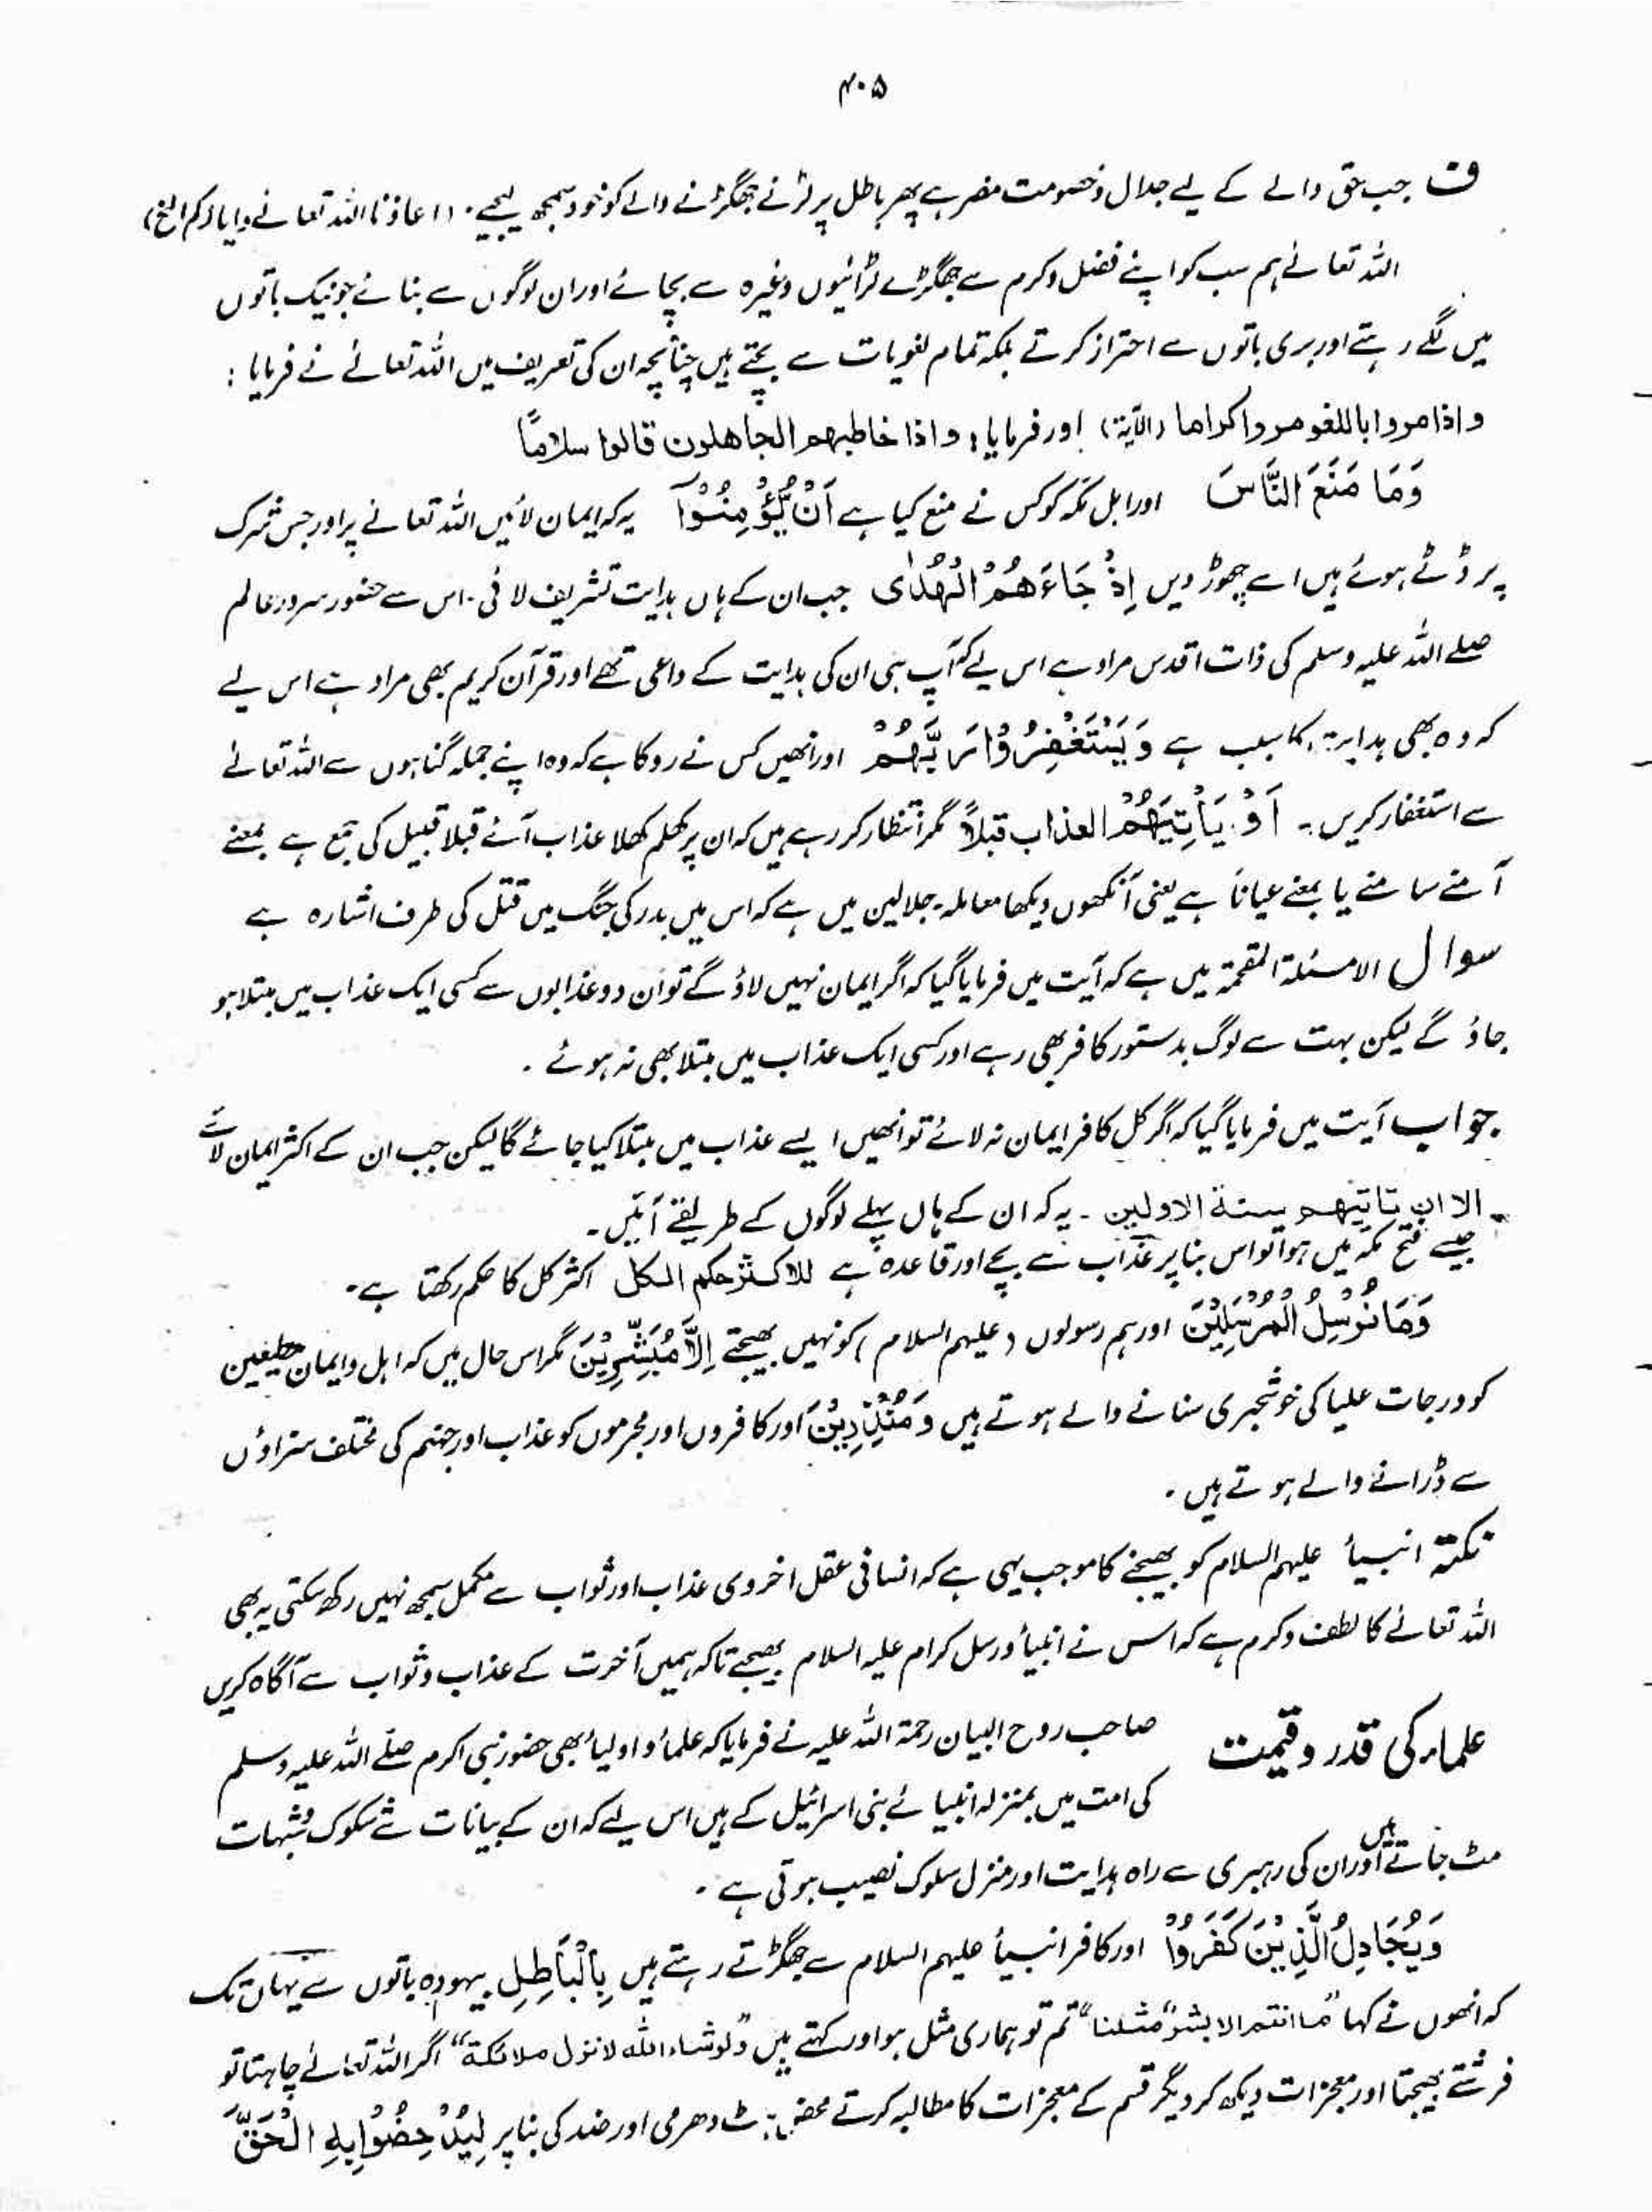 ۴۰۵
ف جب حق والے کے لیے جدال وخصومت مضر ہے پھر باطل پر لڑنے جھگڑنے والے کو خود سمجھ لیجیے۔ (اعاذنا اللہ تعالےٰ وایاکم الخ)
اللہ تعالےٰ ہم سب کو اپنے فضل وکرم سے جھگڑے لڑائیوں وغیرہ سے بچائے اور ان لوگوں سے بنائے جو نیک باتوں
میں لگے رہتے اور بری باتوں سے احتراز کرتے بلکہ تمام لغویات سے بچتے ہیں چنانچہ ان کی تعریف میں اللہ تعالےٰ نے فرمایا :
واذا مروا باللغو مروا کراما (الآیۃ) اور فرمایا : واذا خاطبھم الجاھلون قالوا سلامًا
وَمَا مَنَعَ النَّاسَ اور اہل مکہ کو کس نے منع کیا ہے اَنْ یُّؤْمِنُوْٓا یہ کہ ایمان لائیں اللہ تعالےٰ پر اور جس شرک
پر ڈٹے ہوئے ہیں اسے چھوڑ دیں اِذْ جَاءَھُمُ الْھُدٰی جب ان کے ہاں ہدایت تشریف لائی۔ اس سے حضور سرور عالم
صلے اللہ علیہ وسلم کی ذات اقدس مراد ہے اس لیے کہ آپ ہی ان کی ہدایت کے داعی تھے اور قرآن کریم بھی مراد ہے اس لیے
کہ وہ بھی ہدایت کا سبب ہے وَیَسْتَغْفِرُوْا رَبَّھُمْ اور انھیں کس نے روکا ہے کہ وہ اپنے جملہ گناہوں سے اللہ تعالےٰ
سے استغفار کریں۔ اَوْ یَاْتِیَھُمُ العذاب قبلاً مگر انتظار کر رہے ہیں کہ ان پر کھلم کھلا عذاب آئے قبلا قبیل کی جمع ہے بمعنے
آمنے سامنے یا بمعنے عیاناً ہے یعنی آنکھوں دیکھا معاملہ۔ جلالین میں ہے کہ اس میں بدر کی جنگ میں قتل کی طرف اشارہ ہے
سوال الاسئلۃ المقحمۃ میں ہے کہ آیت میں فرمایا گیا کہ اگر ایمان نہیں لاؤ گے تو ان دو عذابوں سے کسی ایک عذاب میں مبتلا ہو
جاؤ گے لیکن بہت سے لوگ بدستور کافر بھی رہے اور کسی ایک عذاب میں مبتلا بھی نہ ہوئے ۔
جواب آیت میں فرمایا گیا کہ اگر کل کافر ایمان نہ لائے تو انھیں ایسے عذاب میں مبتلا کیا جائے گا لیکن جب ان کے اکثر ایمان لائے
الا ان تاتیھم سنۃ الاولین ۔ یہ کہ ان کے ہاں پہلے لوگوں کے طریقے آئیں۔
جیسے فتح مکہ میں ہوا تو اس بنا پر عذاب سے بچے اور قاعدہ ہے للاکثر حکم الکل اکثر کل کا حکم رکھتا ہے۔
وَمَا نُرْسِلُ الْمُرْسَلِیْنَ اور ہم رسولوں (علیہم السلام) کو نہیں بھیجتے اِلَّا مُبَشِّرِیْنَ مگر اس حال میں کہ اہل و ایمان مطیعین
کو درجات علیا کی خوشخبری سنانے والے ہوتے ہیں وَمُنْذِرِیْنَ اور کافروں اور مجرموں کو عذاب اور جہنم کی مختلف سزاؤں
سے ڈرانے والے ہوتے ہیں ۔
نکتہ انبیأ علیہم السلام کو بھیجنے کا موجب یہی ہے کہ انسانی عقل اخروی عذاب اور ثواب سے مکمل سمجھ نہیں رکھ سکتی یہ بھی
اللہ تعالےٰ کا لطف وکرم ہے کہ اس نے انبیأ ورسل کرام علیہ السلام بھیجے تاکہ ہمیں آخرت کے عذاب وثواب سے آگاہ کریں
علماء کی قدر و قیمت صاحب روح البیان رحمۃ اللہ علیہ نے فرمایا کہ علمأ و اولیأ بھی حضور نبی اکرم صلے اللہ علیہ وسلم
کی امت میں بمنزلہ انبیائے بنی اسرائیل کے ہیں اس لیے کہ ان کے بیانات سے شکوک وشبہات
مٹ جاتے ہیں اور ان کی رہبری سے راہ ہدایت اور منزل سلوک نصیب ہوتی ہے ۔
وَیُجَادِلُ الَّذِیْنَ کَفَرُوْا اور کافر انبیأ علیہم السلام سے جھگڑتے رہتے ہیں بِالْبَاطِلِ بیہودہ باتوں سے یہاں تک
کہ انھوں نے کہا ”ما انتم الا بشر مثلنا“ تم تو ہماری مثل ہو اور کہتے ہیں ”لو شاء اللہ لانزل ملائکۃ“ اگر اللہ تعالےٰ چاہتا تو
فرشتے بھیجتا اور معجزات دیکھ کر دیگر قسم کے معجزات کا مطالبہ کرتے محض ہٹ دھرمی اور ضد کی بنا پر لِیُدْحِضُوْا بِہِ الْحَقَّ